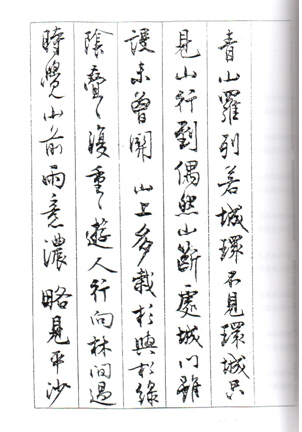 青山羅列若城環不見環城只
見山行到偶然山斷處城門雖
設未曾關山上多栽杉與松綠
陰疊〻復重〻遊人行向林間過
時覺山前雨意濃略見平沙